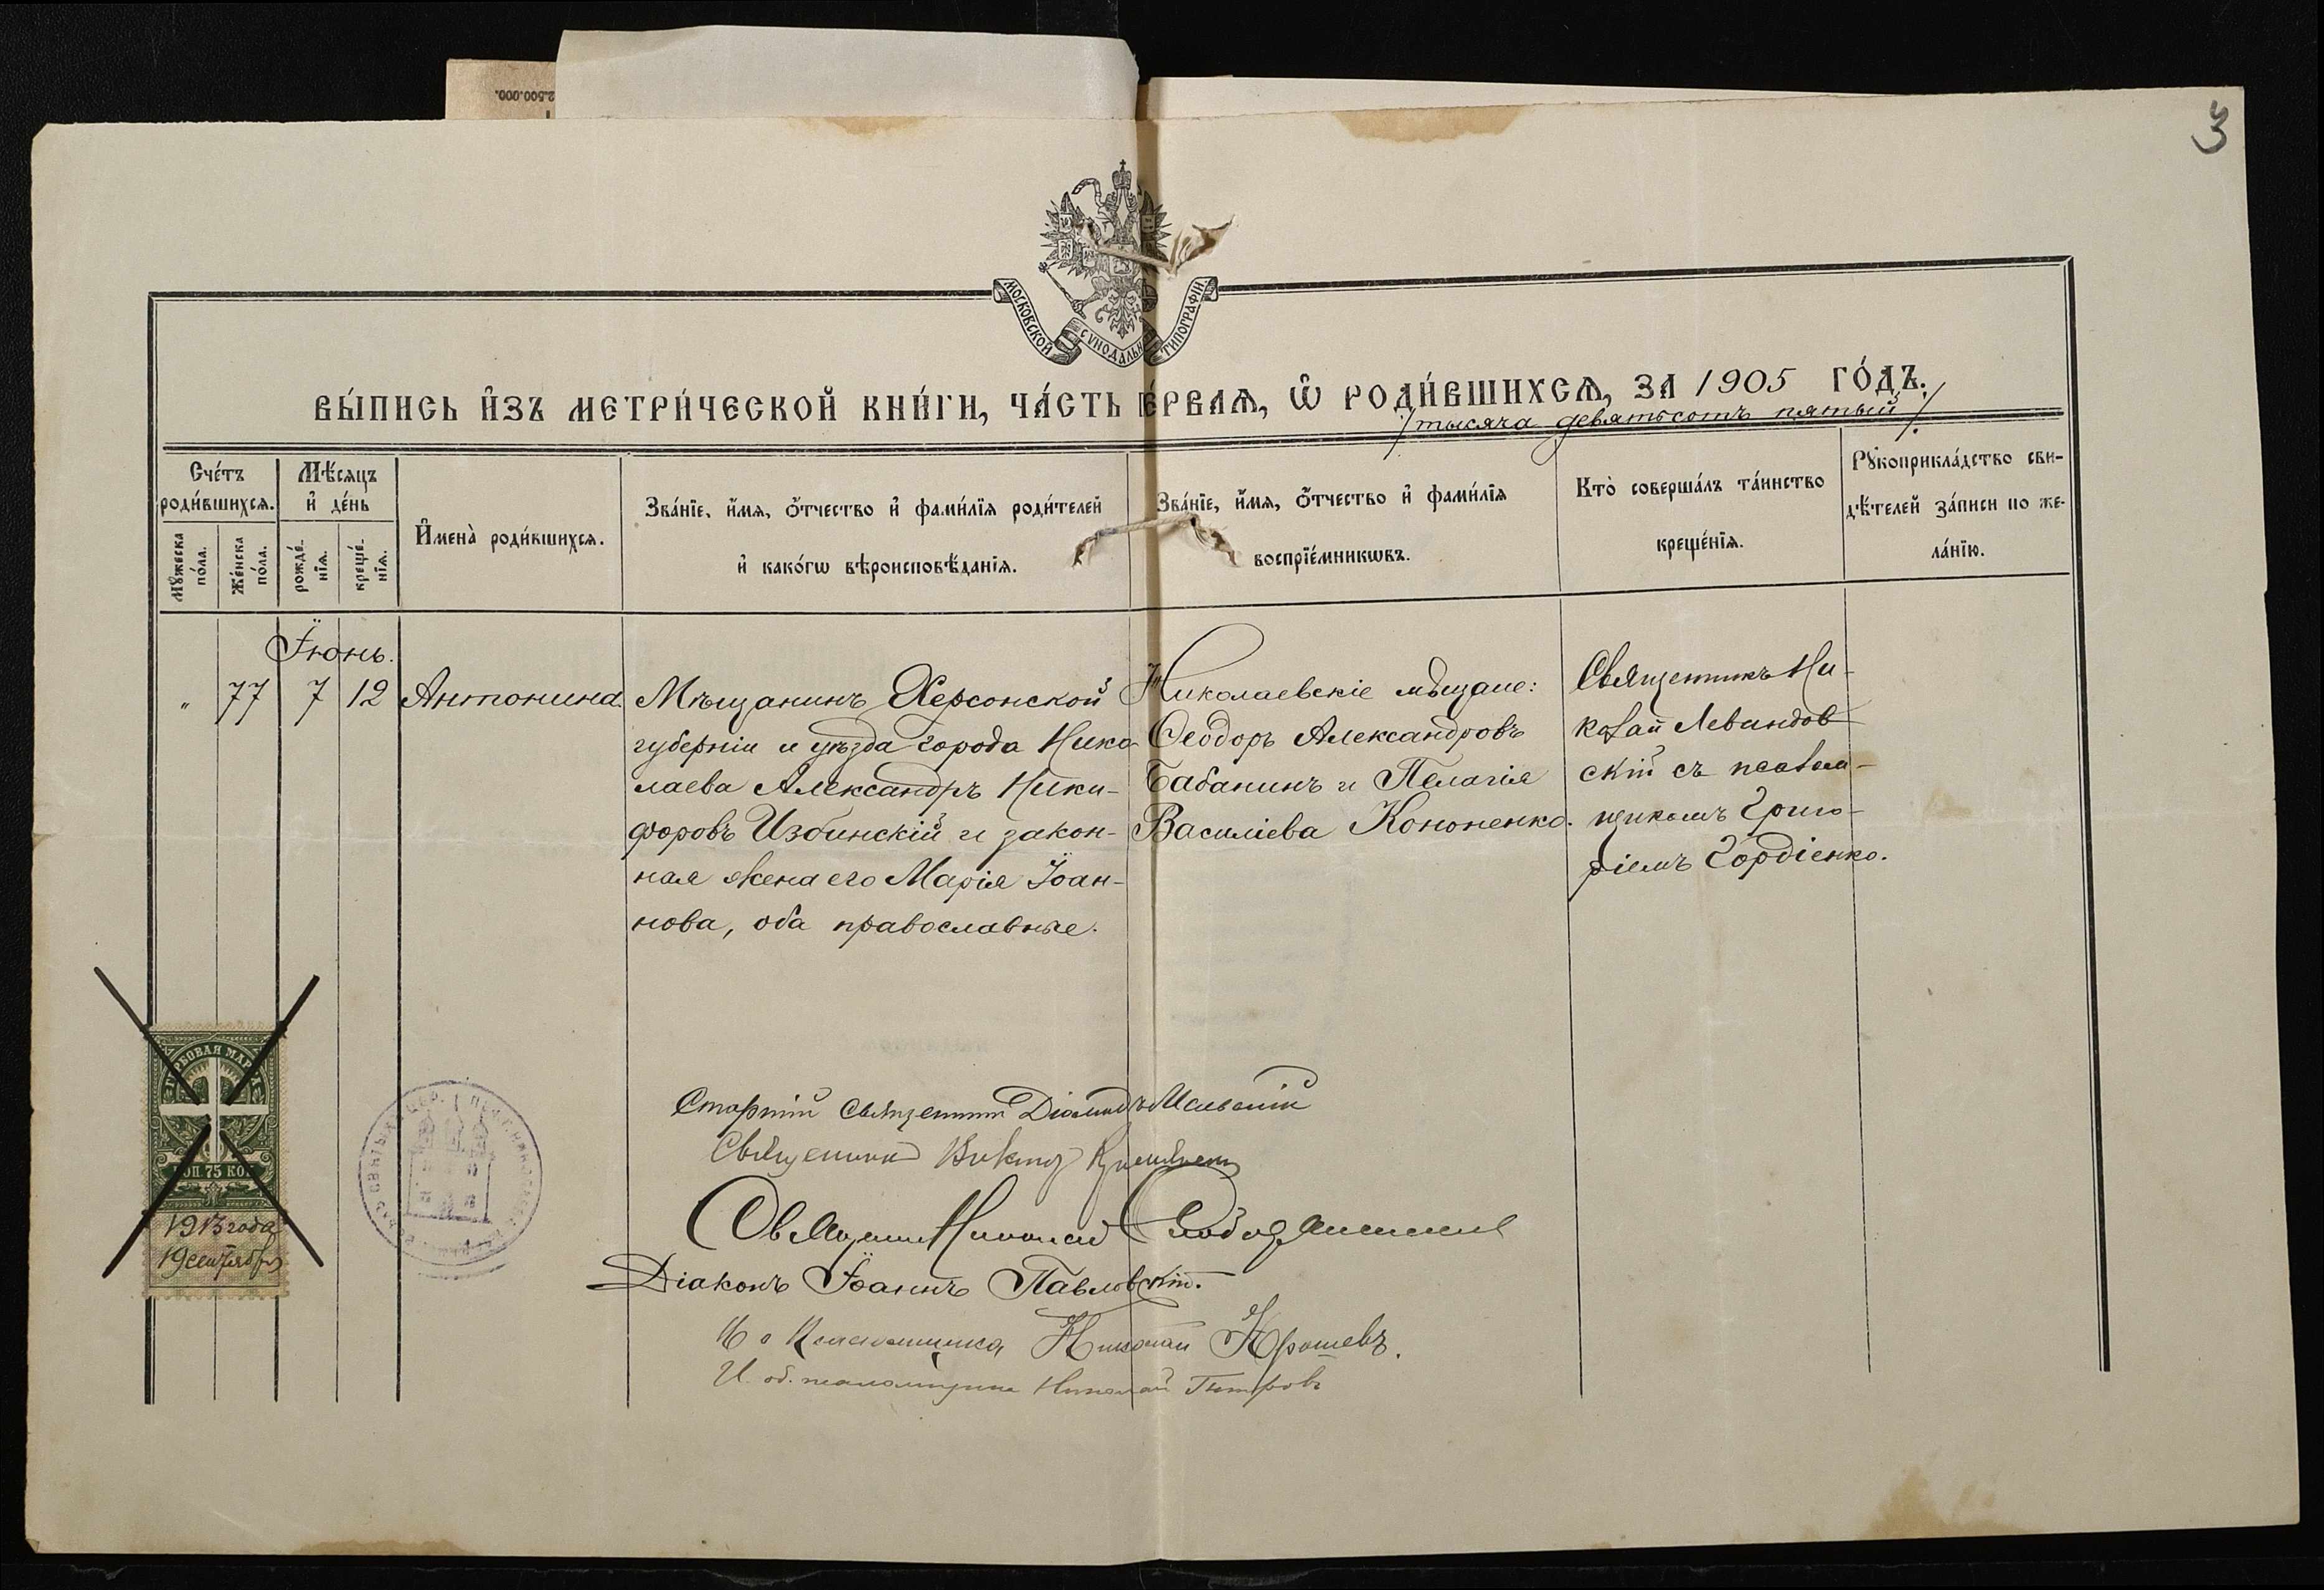 2.500.000.
3
МОСКОВСКОЙ СУНОДАЛЬН ТИПОГРАФІИ
ВЫ́ПИСЬ И҆ЗЪ МЕТРИ́ЧЕСКОЙ КНИ́ГИ, ЧА́СТЬ ПЕ́РВАѦ, Ѡ҆ РОДИ́ВШИХСѦ, ЗА 1905 ГО́ДЪ.
/тысяча девятьсотъ пятый/.
Сче́тъ роди́вшихсѧ.
Мꙋ́жеска по́ла.
Же́нска по́ла.
Мѣ́сяцъ и҆ де́нь
рожде́нїѧ.
креще́нїѧ.
И҆мена̀ роди́вшихсѧ.
Зва́нїе, и҆́мѧ, ѻ҆́тчество и҆ фами́лїѧ роди́телей
и҆ како́гѡ вѣроисповѣ́данїѧ.
Зва́нїе, и҆́мѧ, ѻ҆́тчество и҆ фами́лїѧ
воспрїе́мникѡвъ.
Кто̀ соверша́лъ та́инство
креще́нїѧ.
Рꙋкоприкла́дство сви-
дѣ́телей за́писи по же-
ла́нїю.
Іюнь.
" 77 7 12 Антонина
Мѣщанинъ Херсонской
губерніи и уѣзда города Нико
лаева Александръ Ники-
форовъ Избинскій и закон-
ная жена его Марія Іоан-
нова, оба православные.
Николаевскіе мѣщане:
Ѳеодоръ Александровъ
Бабанинъ и Пелагія
Василіева Кононенко.
Священникъ Ни-
колай Левиндов
скій съ псалом-
щикомъ Григо-
ріемъ Гордіенко.
ГЕРБОВАЯ МАРКА
КОП. 75 КОП
1913 года
19 сентября
Старшій священникъ
Священникъ Викторъ
Священникъ Николай
Діаконъ Іоаннъ Павловскій.
И о Псаломщика Николай
И. об. псаломщика Николай Петровъ